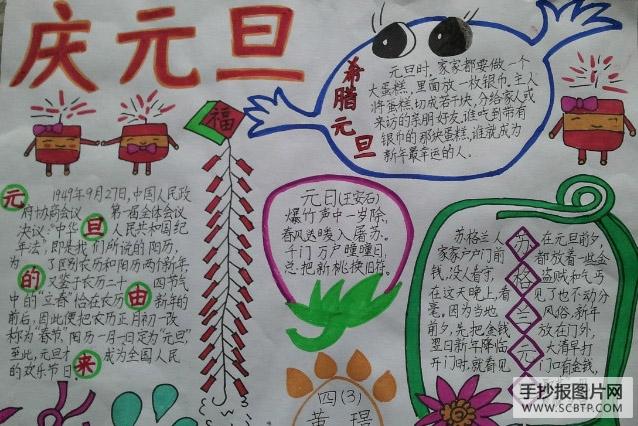 庆元旦
福
希腊元旦
元旦时,家家都要做一个
大蛋糕,里面放一枚银币,主人
将蛋糕切成若干块,分给家人或
来访的亲朋好友,谁吃到带有
银币的那块蛋糕,谁就成为
新年最幸运的人。
元旦的由来
1949年9月27日,中国人民政
府协商会议 第一届全体会议
决议:"中华 人民共和国纪
年法",即是我们所说的阳历,
为 了区别农历和阳历两个新年
又鉴于农历二十 四节气
中的"立春"恰在农历 新年的
前后,因此便把农历正月初一改
称为"春节",阳历一月一日定为"元旦",
至此,元旦才 成为全国人民
的欢乐节日。
元日(王安石)
爆竹声中一岁除,
春风送暖入屠苏。
千门万户曈曈日,
总把新桃换旧符。
苏格兰元
苏格兰人 在元旦前夕,
家家户户门前 都放着一些金
钱,没人看守, 盗贼和乞丐
在这天晚上,看 见了也不动分
毫。因为当地 风俗,新年
前夕,先把金钱 放在门外,
翌日新年降临 大清早打
开门时,就看见 门口有金钱,
四(3)
黄璟
手抄报图片网
WWW.SCBTP.COM